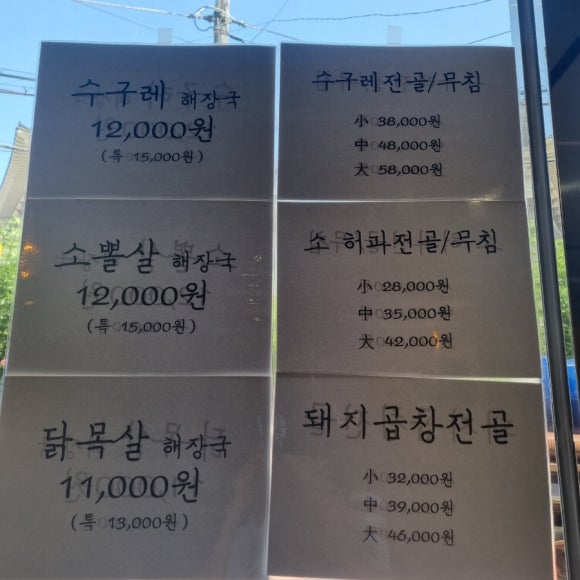 수구레 해장국
12,000원
(특 15,000원)
소뽈살 해장국
12,000원
(특 15,000원)
닭목살 해장국
11,000원
(특 13,000원)
수구레전골/무침
小 38,000원
中 48,000원
大 58,000원
소 허파전골/무침
小 28,000원
中 35,000원
大 42,000원
돼지곱창전골
小 32,000원
中 39,000원
大 46,000원